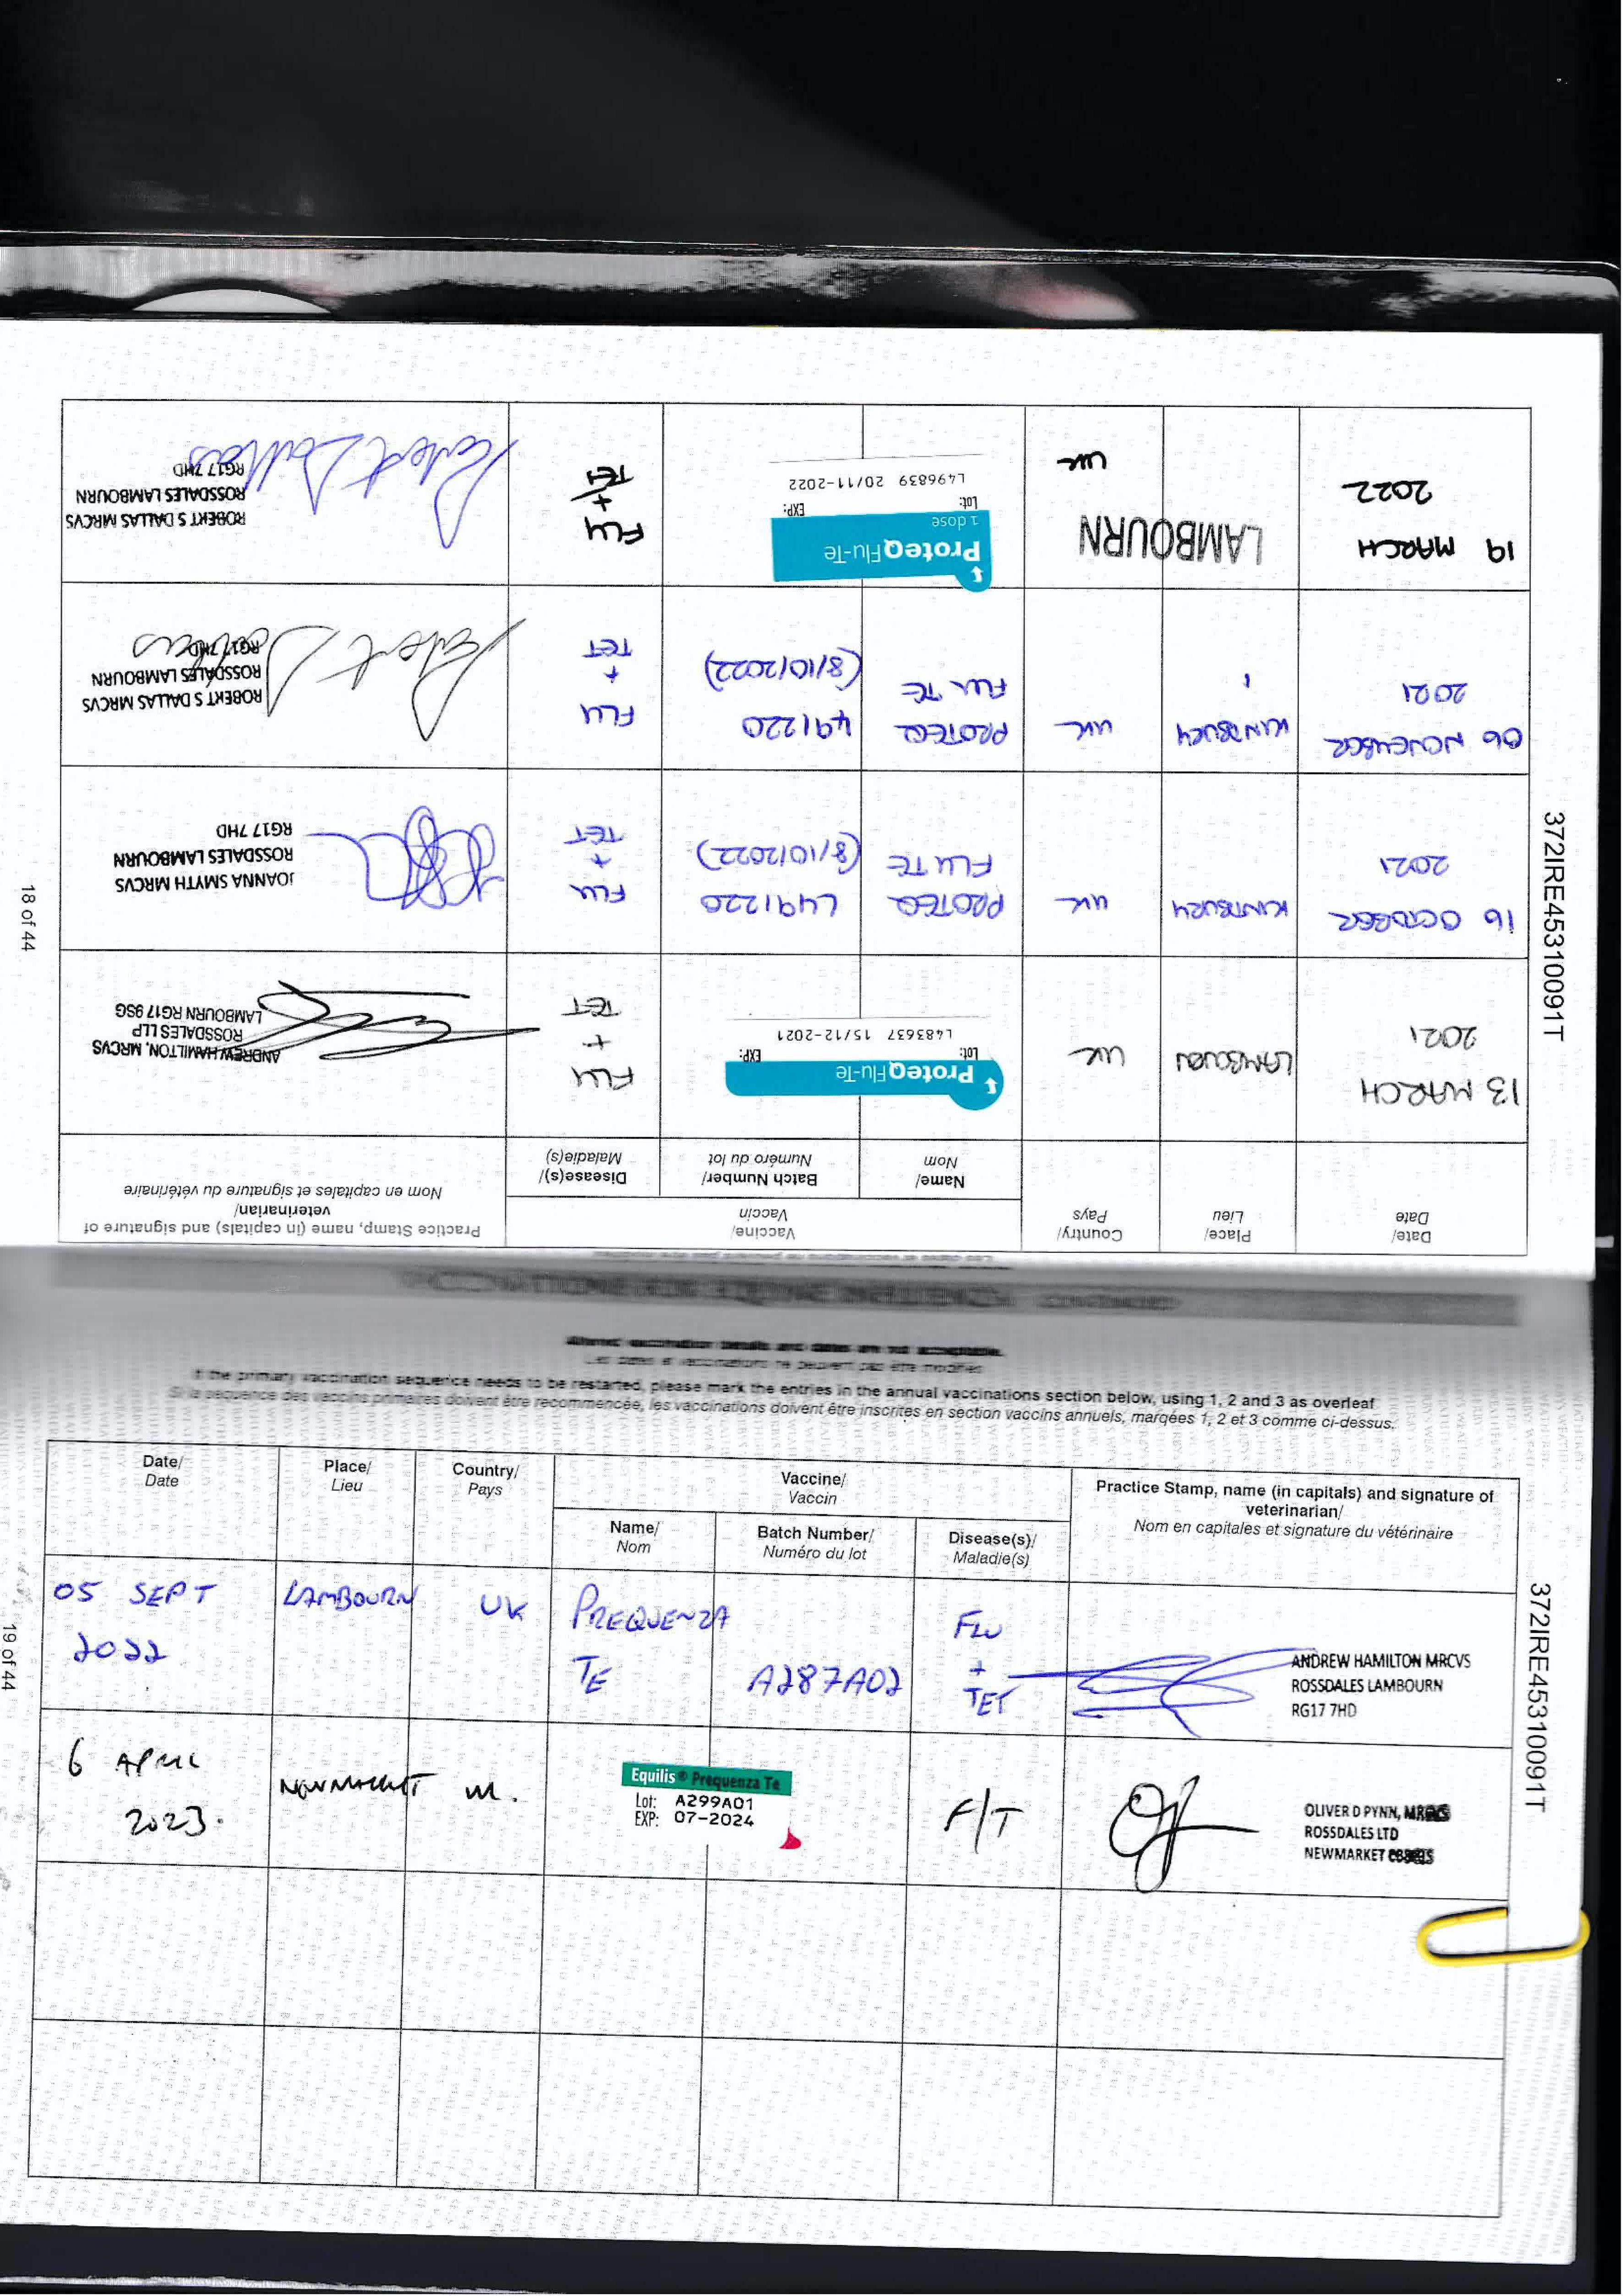 Date/
Date
Place/
Lieu
Country/
Pays
Vaccine/
Vaccin
Practice Stamp, name (in capitals) and signature of
veterinarian/
Nom en capitales et signature du vétérinaire
Name/
Nom
Batch Number/
Numéro du lot
Disease(s)/
Maladie(s)
13 MARCH
2021
LAMBOURN
UK
ProteqFlu-Te
Lot: EXP:
L483637 15/12-2021
FLU
+
TET
ANDREW HAMILTON, MRCVS
ROSSDALES LLP
LAMBOURN RG17 9SG
16 OCTOBER
2021
KINTBURY
UK
PROTEQ
FLU TE
L491220
(8/10/2022)
FLU
+
TET
JOANNA SMYTH MRCVS
ROSSDALES LAMBOURN
RG17 7HD
06 NOVEMBER
2021
KINTBURY
UK
PROTEQ
FLU TE
491220
(8/10/2022)
FLU
+
TET
ROBERT S DALLAS MRCVS
ROSSDALES LAMBOURN
RG17 7HD
19 MARCH
2022
LAMBOURN
UK
ProteqFlu-Te
1 dose
Lot: EXP:
L496839 20/11-2022
FLU
+
TET
ROBERT S DALLAS MRCVS
ROSSDALES LAMBOURN
RG17 7HD
372IRE45310091T
18 of 44
Altered vaccination details and dates are not acceptable.
Les dates et vaccinations ne peuvent pas être modifiés
If the primary vaccination sequence needs to be restarted, please mark the entries in the annual vaccinations section below, using 1, 2 and 3 as overleaf
Si la séquence des vaccins primaires doivent être recommencée, les vaccinations doivent être inscrites en section vaccins annuels, marqées 1, 2 et 3 comme ci-dessus.
Date/
Date
Place/
Lieu
Country/
Pays
Vaccine/
Vaccin
Practice Stamp, name (in capitals) and signature of
veterinarian/
Nom en capitales et signature du vétérinaire
Name/
Nom
Batch Number/
Numéro du lot
Disease(s)/
Maladie(s)
05 SEPT
2022
LAMBOURN
UK
PREQUENZA
TE
A287A02
FLU
+
TET
ANDREW HAMILTON MRCVS
ROSSDALES LAMBOURN
RG17 7HD
6 APRIL
2023.
NEWMARKET
UK.
Equilis® Prequenza Te
Lot: A299A01
EXP: 07-2024
F/T
OLIVER D PYNN, MRCVS
ROSSDALES LTD
NEWMARKET
372IRE45310091T
19 of 44